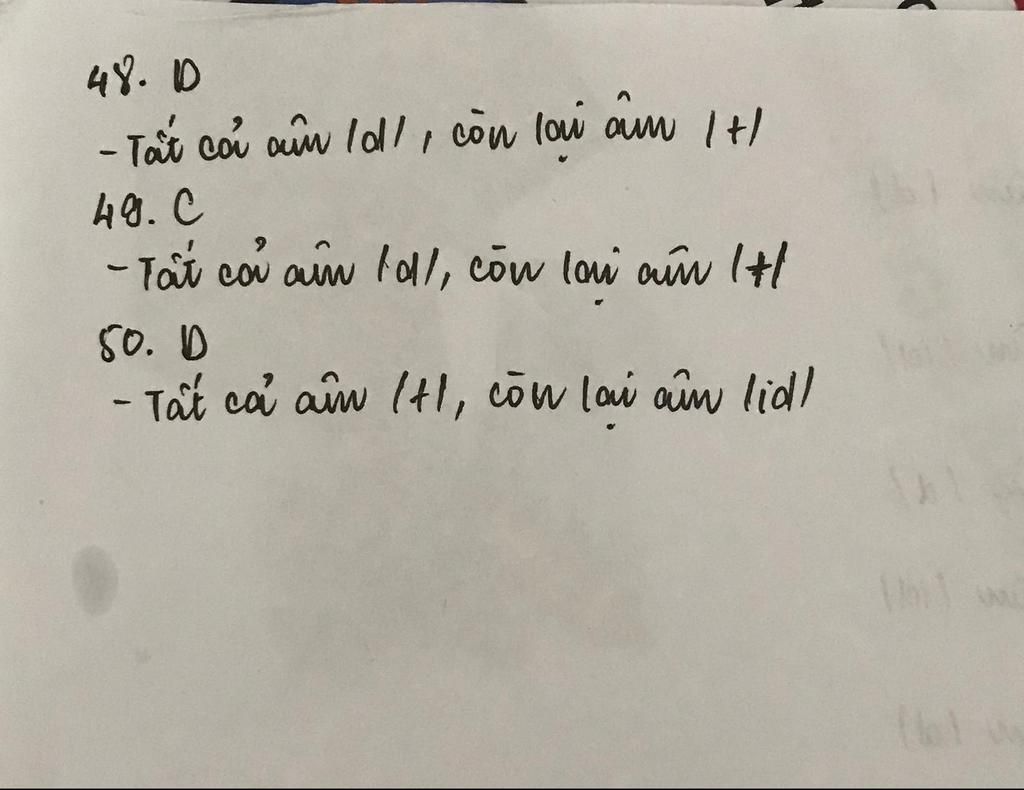 48. D
- Tất cả âm /d/, còn lại âm /t/
49. C
- Tất cả âm /d/, còn lại âm /t/
50. D
- Tất cả âm /t/, còn lại âm /id/